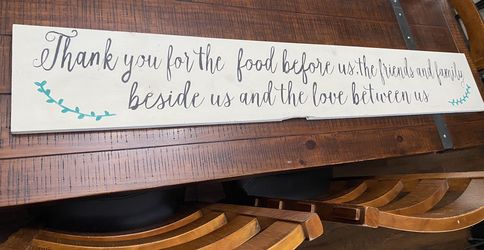 Thank you for the food before us, the friends and family
beside us and the love between us